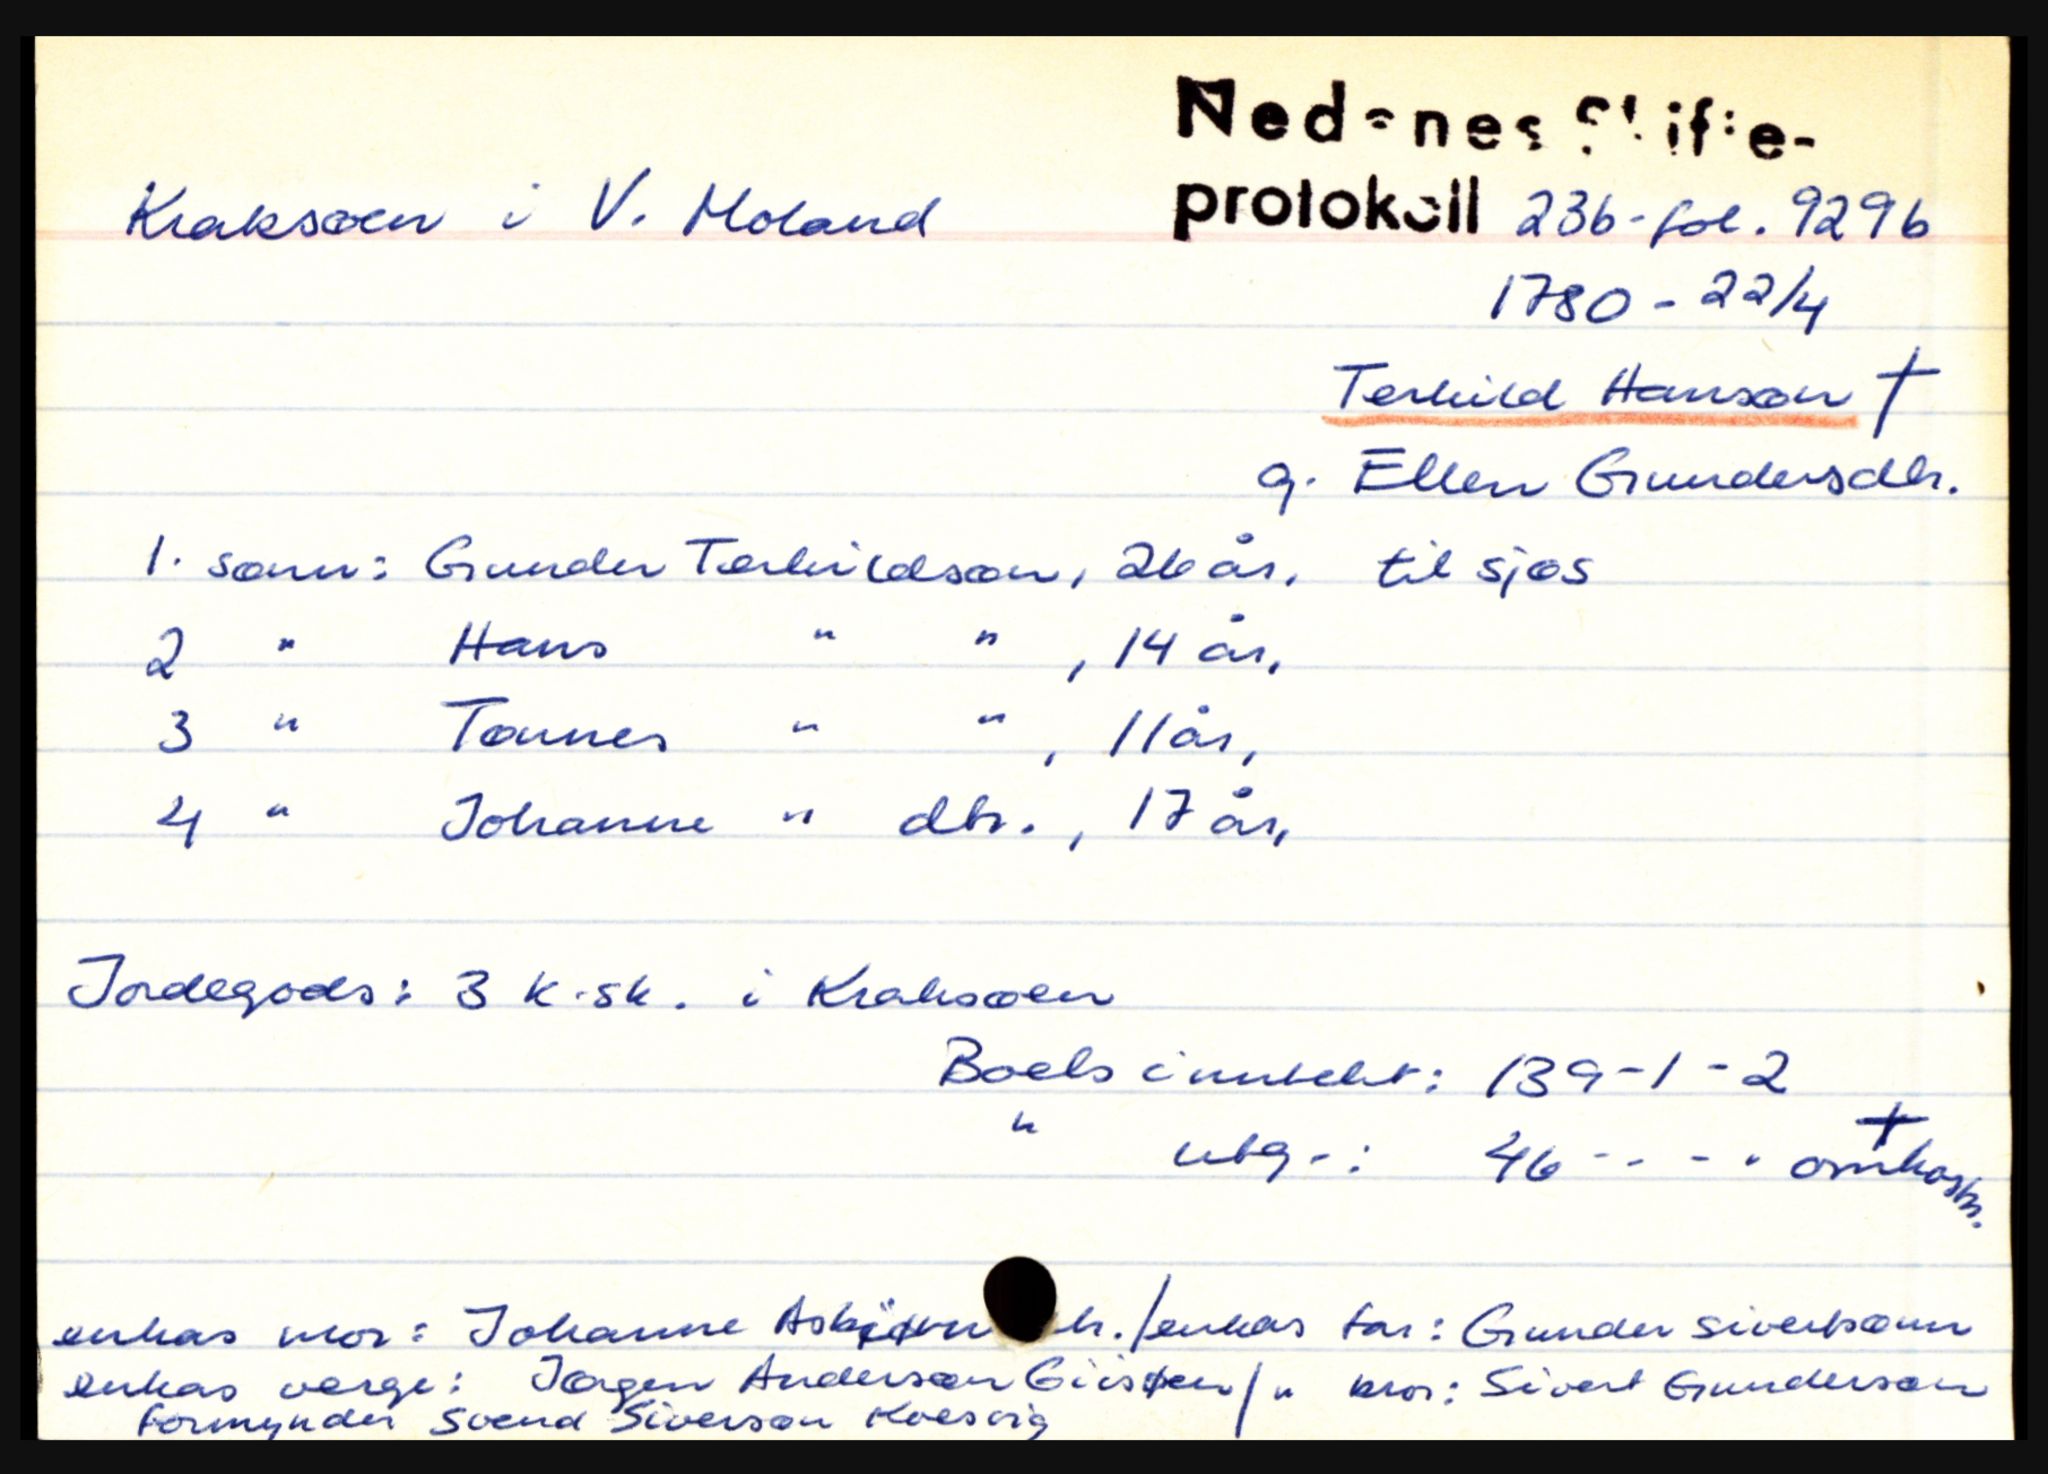 Nedenes Skifte-
Kraksøen i V. Moland protokoll 23b - fol. 929b
1780 - 22/4
Terkild Hansøn †
g. Ellen Gundersdtr.
1. sønn: Gunder Terkildsøn, 26 år, til sjøs
2 " Hans " " , 14 år,
3 " Tønnes " " , 11 år,
4 " Johanne " dtr. , 17 år,
Jordegods: 3 k.sk. i Kraksøen
Boets inntekt: 139 - 1 - 2
" utg-: 46 - - - - + omkostn.
enkas mor: Johanne tr. / enkas far: Gunder Sivertsønn
enkas verge: Jørgen Andersøn / " bror: Sivert Gundersøn
formynder Svend Siversøn